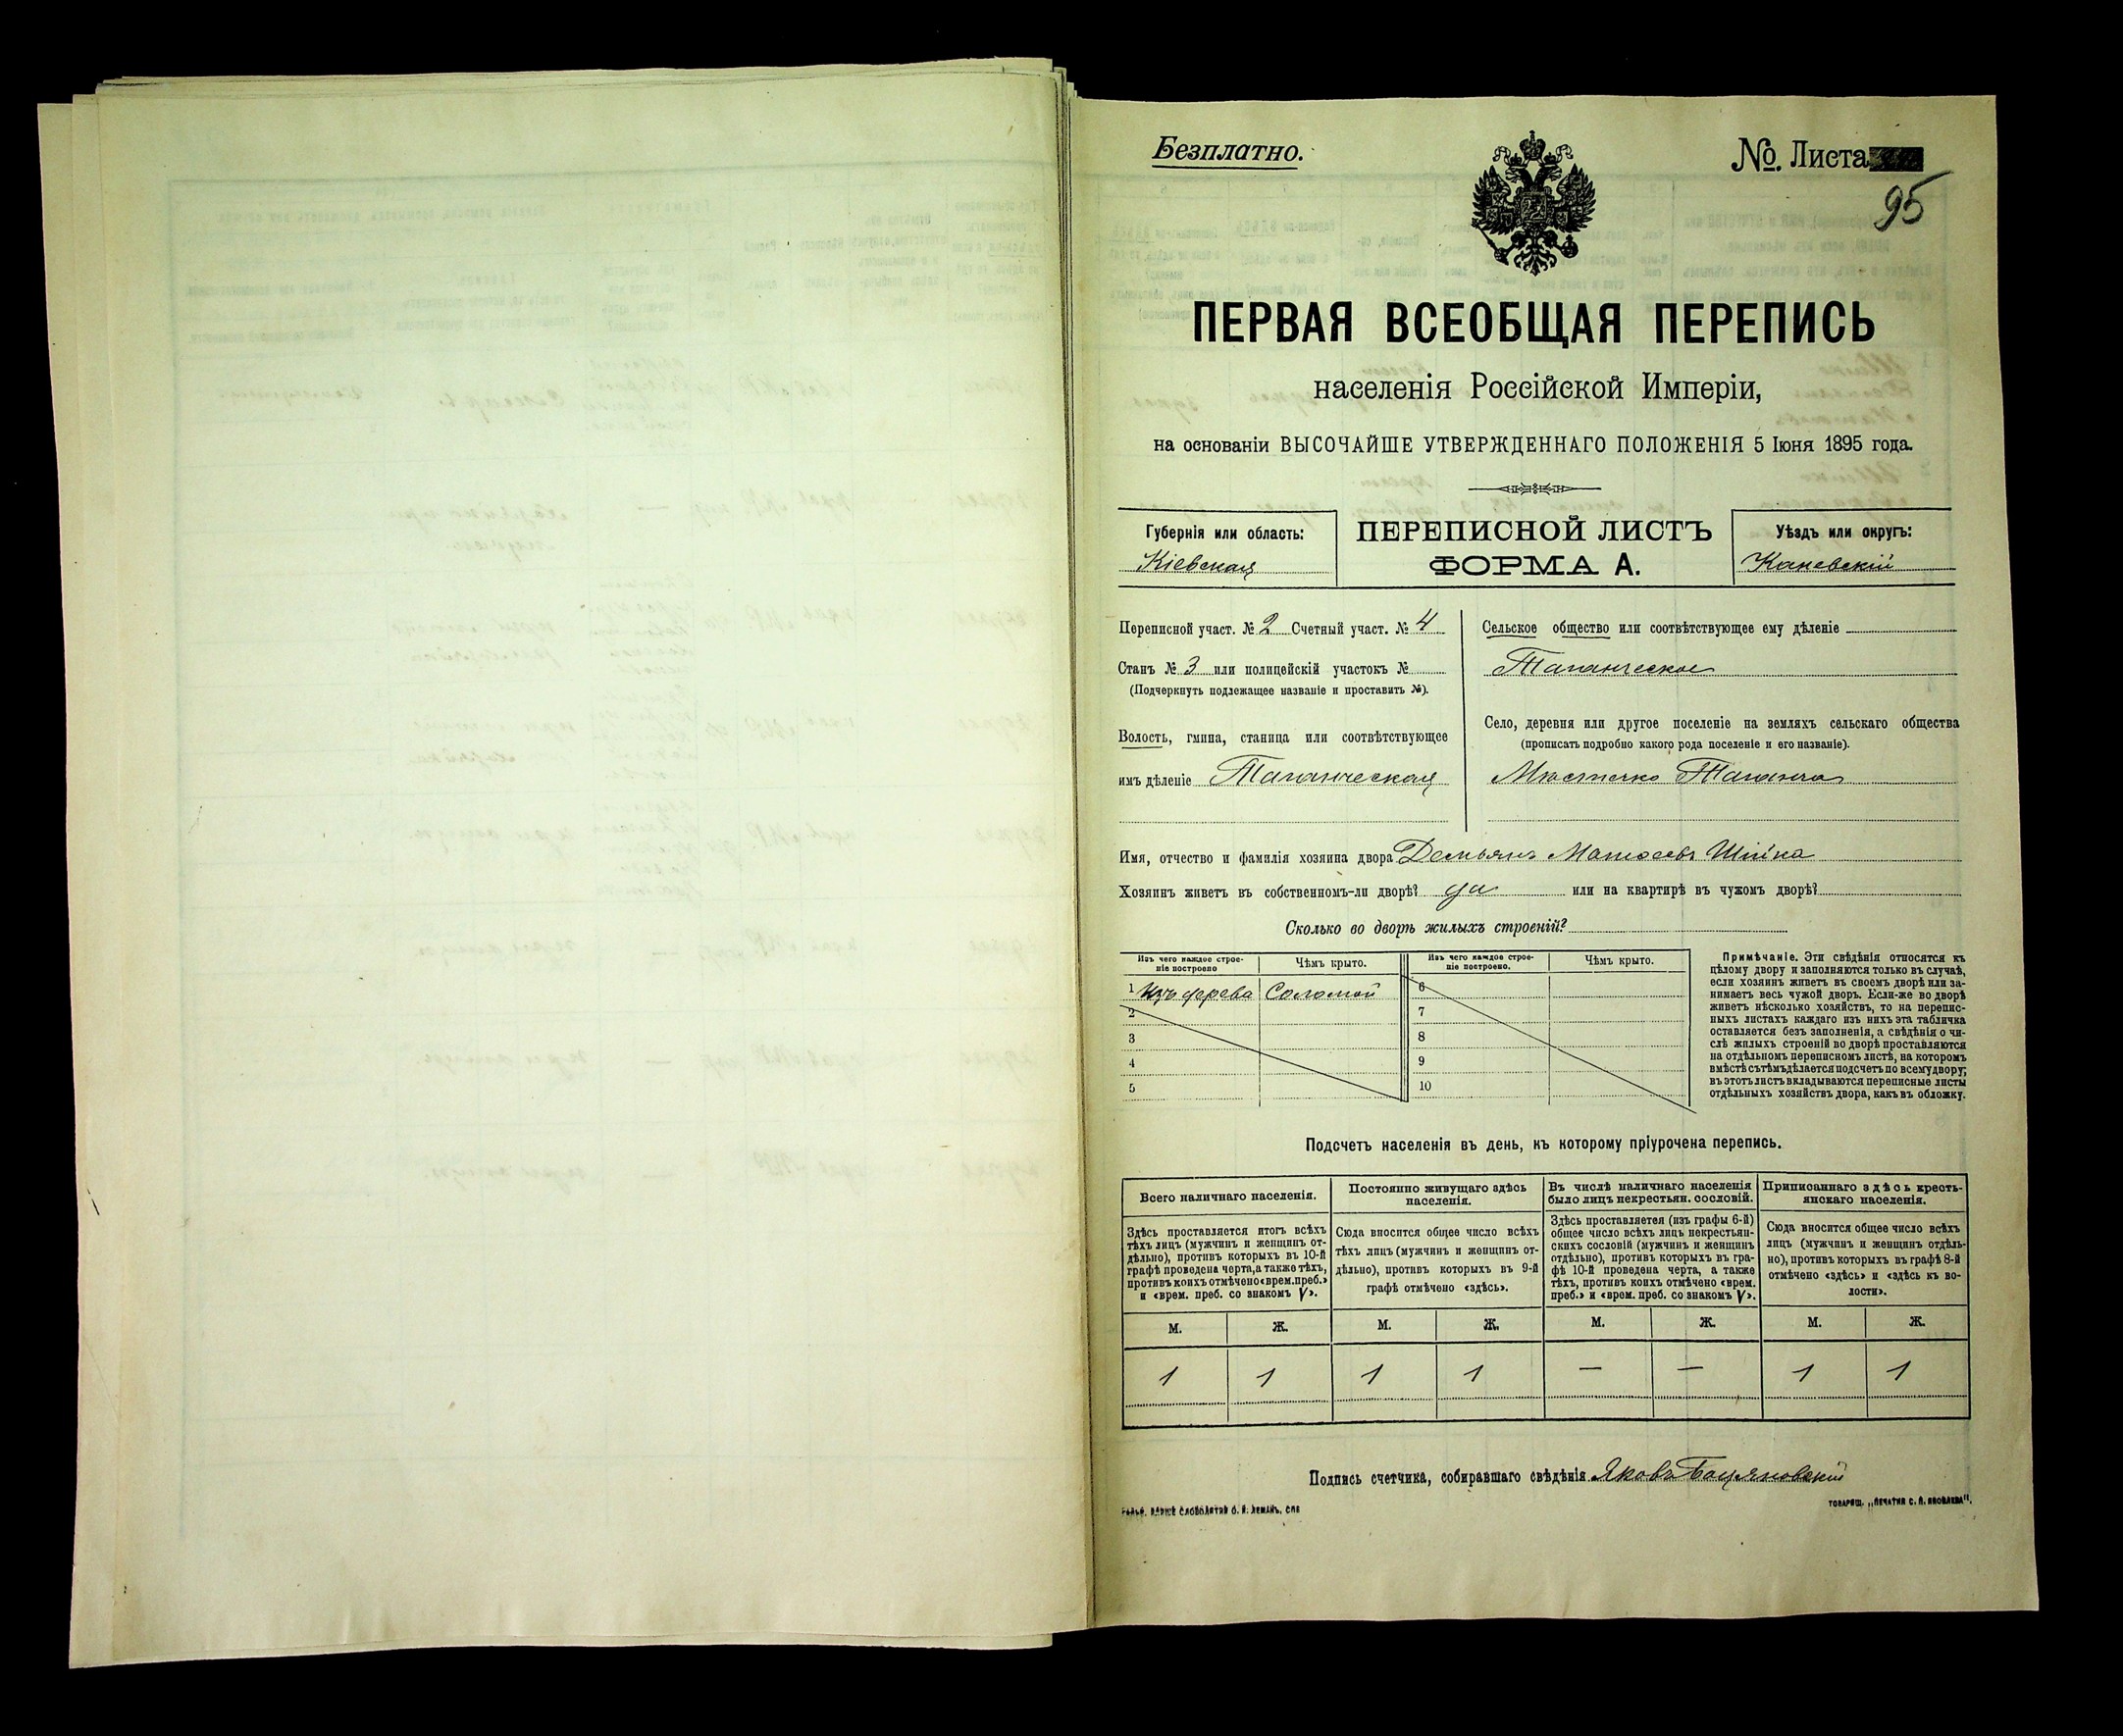 Безплатно.
№. Листа
95
ПЕРВАЯ ВСЕОБЩАЯ ПЕРЕПИСЬ
населенія Россійской Имперіи,
на основаніи ВЫСОЧАЙШЕ УТВЕРЖДЕННАГО ПОЛОЖЕНІЯ 5 Іюня 1895 года.
Губернія или область:
Кіевская
ПЕРЕПИСНОЙ ЛИСТЪ
ФОРМА А.
Уѣздъ или округъ:
Каневскій
Переписной участ. № 2 Счетный участ. № 4
Станъ № 3 или полицейскій участокъ №
(Подчеркнуть подлежащее названіе и проставить №).
Волость, гмина, станица или соотвѣтствующее
имъ дѣленіе Таганческая
Сельское общество или соотвѣтствующее ему дѣленіе
Таганческое
Село, деревня или другое поселеніе на земляхъ сельскаго общества
(прописать подробно какого рода поселеніе и его названіе).
Мѣстечко Таганча
Имя, отчество и фамилія хозяина двора Демьянъ Матвеевъ Шійка
Хозяинъ живетъ въ собственномъ-ли дворѣ? да или на квартирѣ въ чужомъ дворѣ?
Сколько во дворѣ жилыхъ строеній?
Изъ чего каждое строе-
ніе построено
Чѣмъ крыто.
Изъ чего каждое строе-
ніе построено.
Чѣмъ крыто.
1 Изъ дерева Соломой 6
2 7
3 8
4 9
5 10
Примѣчаніе. Эти свѣдѣнія относятся къ
цѣлому двору и заполняются только въ случаѣ,
если хозяинъ живетъ въ своемъ дворѣ или за-
нимаетъ весь чужой дворъ. Если-же во дворѣ
живетъ нѣсколько хозяйствъ, то на перепис-
ныхъ листахъ каждаго изъ нихъ эта табличка
оставляется безъ заполненія, а свѣдѣнія о чи-
слѣ жилыхъ строеній во дворѣ проставляются
на отдѣльномъ переписномъ листѣ, на которомъ
вмѣстѣ съ тѣмъ дѣлается подсчетъ по всему двору;
въ этотъ листъ вкладываются переписные листы
отдѣльныхъ хозяйствъ двора, какъ въ обложку.
Подсчетъ населенія въ день, къ которому пріурочена перепись.
Всего наличнаго населенія.
Здѣсь проставляется итогъ всѣхъ
тѣхъ лицъ (мужчинъ и женщинъ от-
дѣльно), противъ которыхъ въ 10-й
графѣ проведена черта, а также тѣхъ,
противъ коихъ отмѣчено «врем. преб.»
и «врем. преб. со знакомъ V».
Постоянно живущаго здѣсь
населенія.
Сюда вносится общее число всѣхъ
тѣхъ лицъ (мужчинъ и женщинъ от-
дѣльно), противъ которыхъ въ 9-й
графѣ отмѣчено «здѣсь».
Въ числѣ наличнаго населенія
было лицъ некрестьян. сословій.
Здѣсь проставляется (изъ графы 6-й)
общее число всѣхъ лицъ некрестьян-
скихъ сословій (мужчинъ и женщинъ
отдѣльно), противъ которыхъ въ гра-
фѣ 10-й проведена черта, а также
тѣхъ, противъ коихъ отмѣчено «врем.
преб.» и «врем. преб. со знакомъ V».
Приписаннаго здѣсь кресть-
янскаго населенія.
Сюда вносится общее число всѣхъ
лицъ (мужчинъ и женщинъ отдѣль-
но), противъ которыхъ въ графѣ 8-й
отмѣчено «здѣсь» и «здѣсь къ во-
лости».
М. Ж. М. Ж. М. Ж. М. Ж.
1 1 1 1 — — 1 1
Подпись счетчика, собиравшаго свѣдѣнія Яковъ Боцяновскій
СЛОВОЛИТНЯ О. И. ЛЕМАНЪ, СПБ
ТОВАРИЩ. „ПЕЧАТНЯ С. П. ЯКОВЛЕВА".